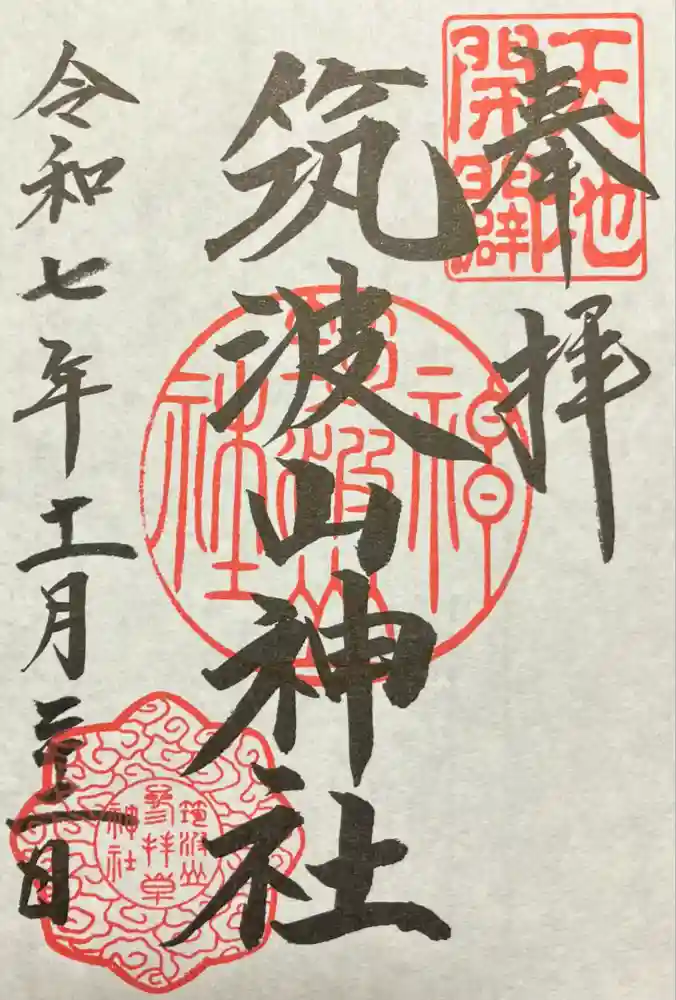 天地
開闢
奉拝
筑波山神社
神
筑波山
社
令和七年十一月二十一日
筑波山
參拝章
神社